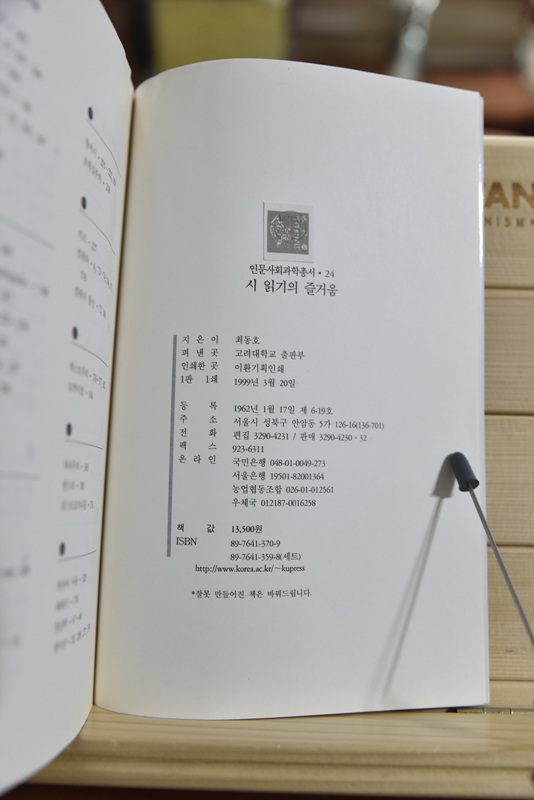 인문사회과학총서 • 24
시 읽기의 즐거움
지 은 이 최동호
펴 낸 곳 고려대학교 출판부
인쇄한 곳 이환기획인쇄
1판 1쇄 1999년 3월 20일
등 록 1962년 1월 17일 제 6-19호
주 소 서울시 성북구 안암동 5가 126-16(136-701)
전 화 편집 3290-4231 / 판매 3290-4230・32
팩 스 923-6311
온 라 인 국민은행 048-01-0049-273
서울은행 19501-82001364
농업협동조합 026-01-012561
우체국 012187-0016258
책 값 13,500원
ISBN 89-7641-370-9
89-7641-359-8(세트)
http://www.korea.ac.kr/~kupress
*잘못 만들어진 책은 바꿔드립니다.
AN
NISM